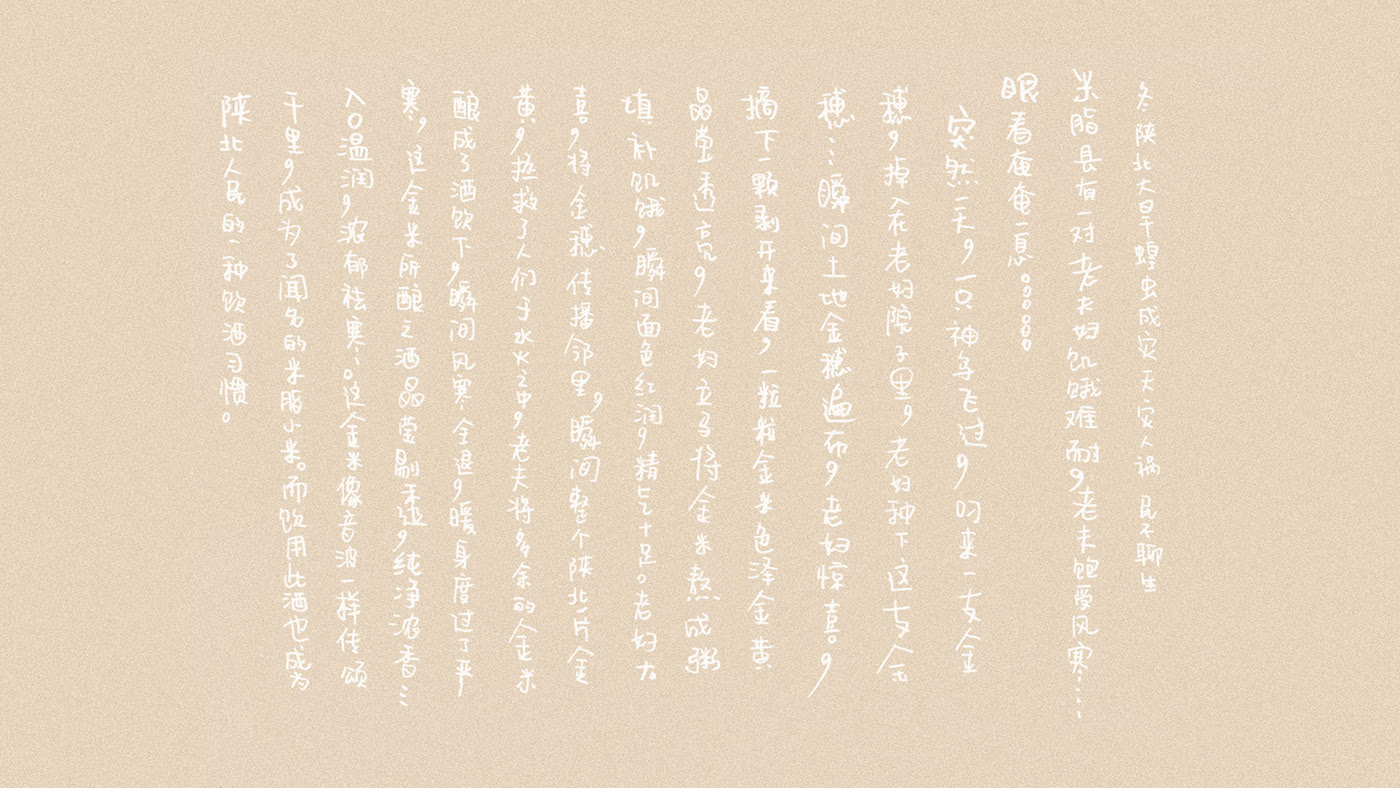 冬陕北大旱蝗虫成灾天灾人祸民不聊生
米脂县有一对老夫妇饥饿难耐,老夫饱受风寒……
眼看奄奄一息。。。。。。
突然一天,一只神鸟飞过,叼来一支金
穗,掉入在老妇院子里,老妇种下这支金
穗…瞬间土地金穗遍布,老妇惊喜。,
摘下一颗剥开来看,一粒粒金米色泽金黄
晶莹透亮,老妇立马将金米熬成粥
填补饥饿,瞬间面色红润,精气十足。老妇大
喜,将金穗传播邻里,瞬间整个陕北一片金
黄,拯救了人们于水火之中,老夫将多余的金米
酿成了酒饮下,瞬间风寒全退,暖身度过了严
寒,这金米所酿之酒晶莹剔透,纯净浓香…
入口温润,浓郁祛寒…。这金米像音波一样传颂
千里,成为了闻名的米脂小米。而饮用此酒也成为
陕北人民的一种饮酒习惯。